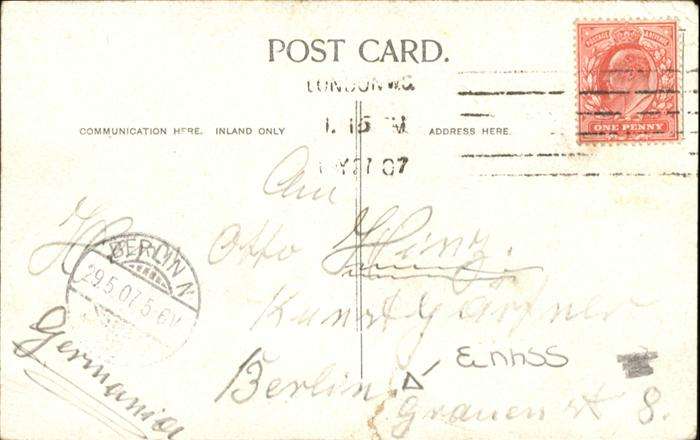 POST CARD.
LONDON W.C.
1. 15 PM
MY 27 07
COMMUNICATION HERE. INLAND ONLY
ADDRESS HERE.
ONE PENNY
An
H Otto Hinz.
Kunstgärtner
BERLIN N
29.5.07. 5-6V
Germania
Berlin
Grauen st 8.